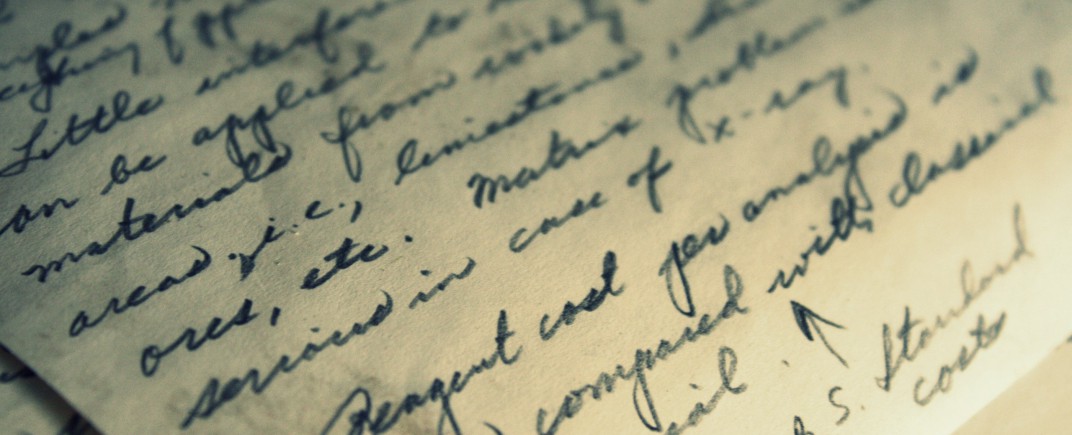 Little
be applied to
materials from
areas, i.e., limestone,
ores, etc. Matrix problem
serious in case of x-ray.
Reagent cost per analysis is
compared with classical
S. Standard
costs